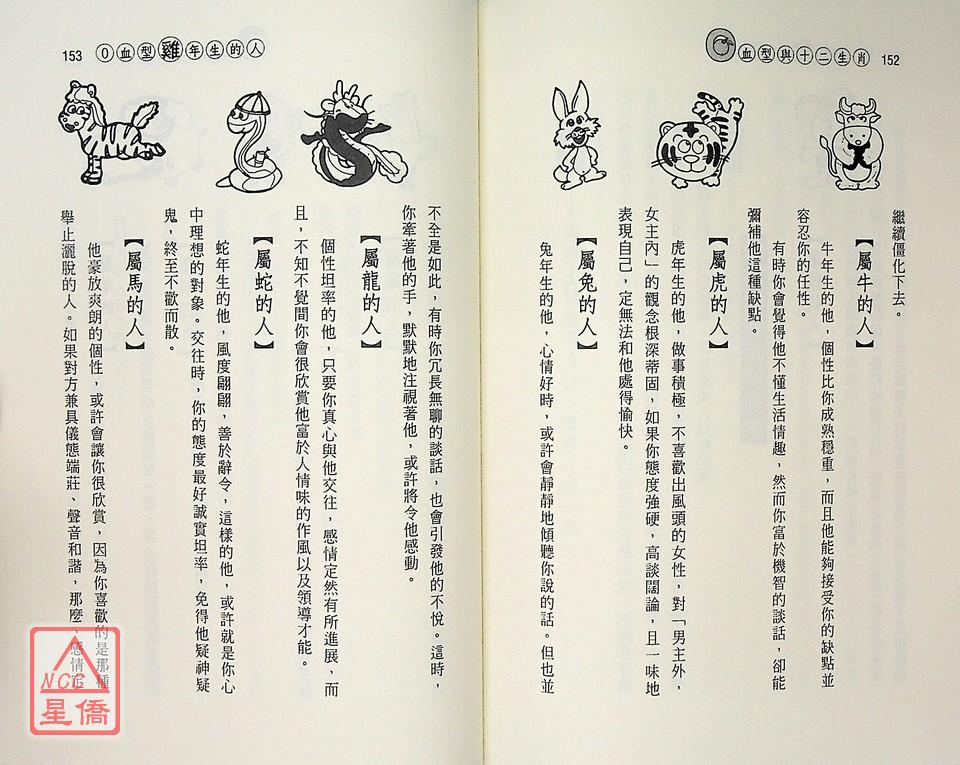 血型與十二生肖 152
繼續僵化下去。
【屬牛的人】
牛年生的他，個性比你成熟穩重，而且他能夠接受你的缺點並
容忍你的任性。
有時你會覺得他不懂生活情趣，然而你富於機智的談話，卻能
彌補他這種缺點。
【屬虎的人】
虎年生的他，做事積極，不喜歡出風頭的女性，對「男主外，
女主內」的觀念根深蒂固，如果你態度強硬，高談闊論，且一味地
表現自己，定無法和他處得愉快。
【屬兔的人】
兔年生的他，心情好時，或許會靜靜地傾聽你說的話。但也並
153 O血型雞年生的人
不全是如此，有時你冗長無聊的談話，也會引發他的不悅。這時，
你牽著他的手，默默地注視著他，或許將令他感動。
【屬龍的人】
個性坦率的他，只要你真心與他交往，感情定然有所進展，而
且，不知不覺間你會很欣賞他富於人情味的作風以及領導才能。
【屬蛇的人】
蛇年生的他，風度翩翩，善於辭令，這樣的他，或許就是你心
中理想的對象。交往時，你的態度最好誠實坦率，免得他疑神疑
鬼，終至不歡而散。
【屬馬的人】
他豪放爽朗的個性，或許會讓你很欣賞，因為你喜歡的是那種
舉止灑脫的人。如果對方兼具儀態端莊、聲音和諧，那麼，感情定
NCC
星僑